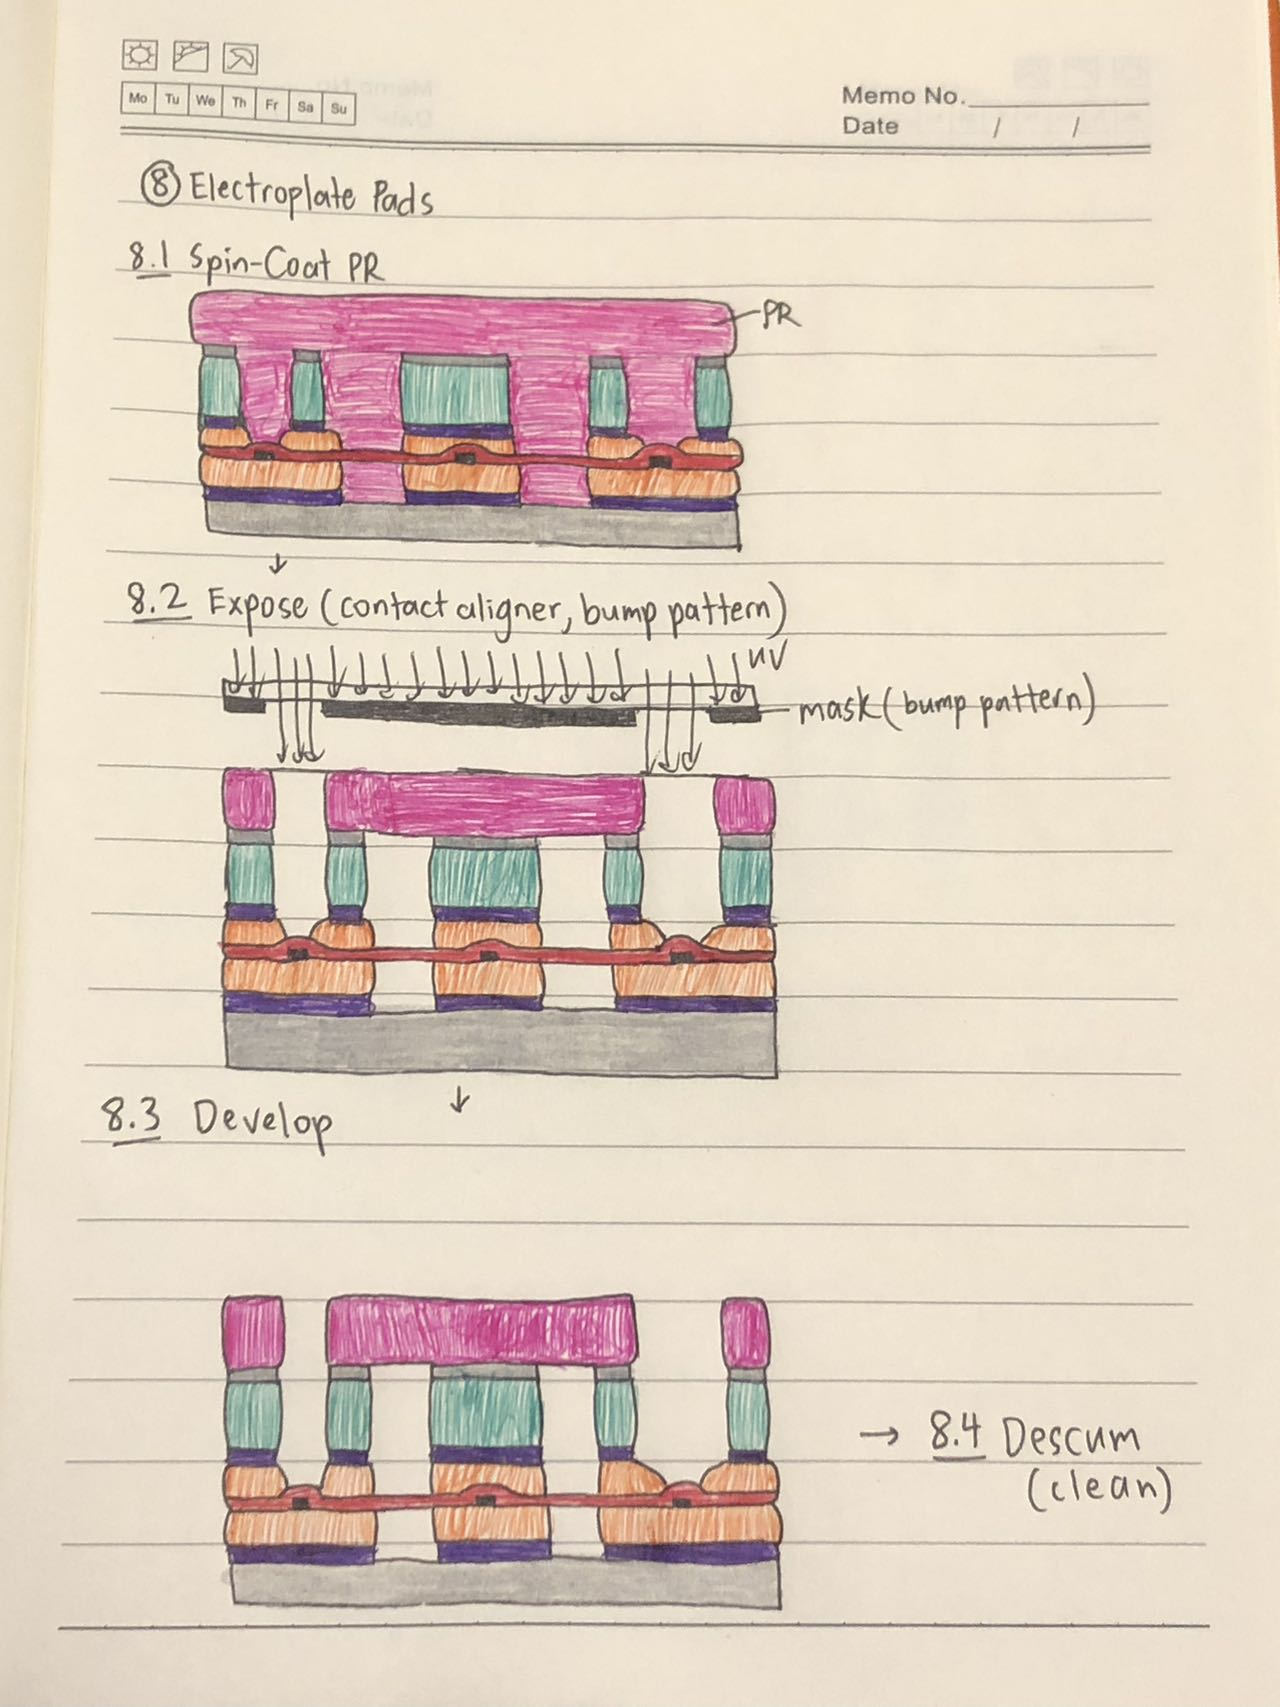 Mo Tu We Th Fr Sa Su
Memo No.
Date / /
⑧ Electroplate Pads
8.1 Spin-Coat PR
PR
8.2 Expose (contact aligner, bump pattern)
UV
mask (bump pattern)
8.3 Develop
→ 8.4 Descum
(clean)